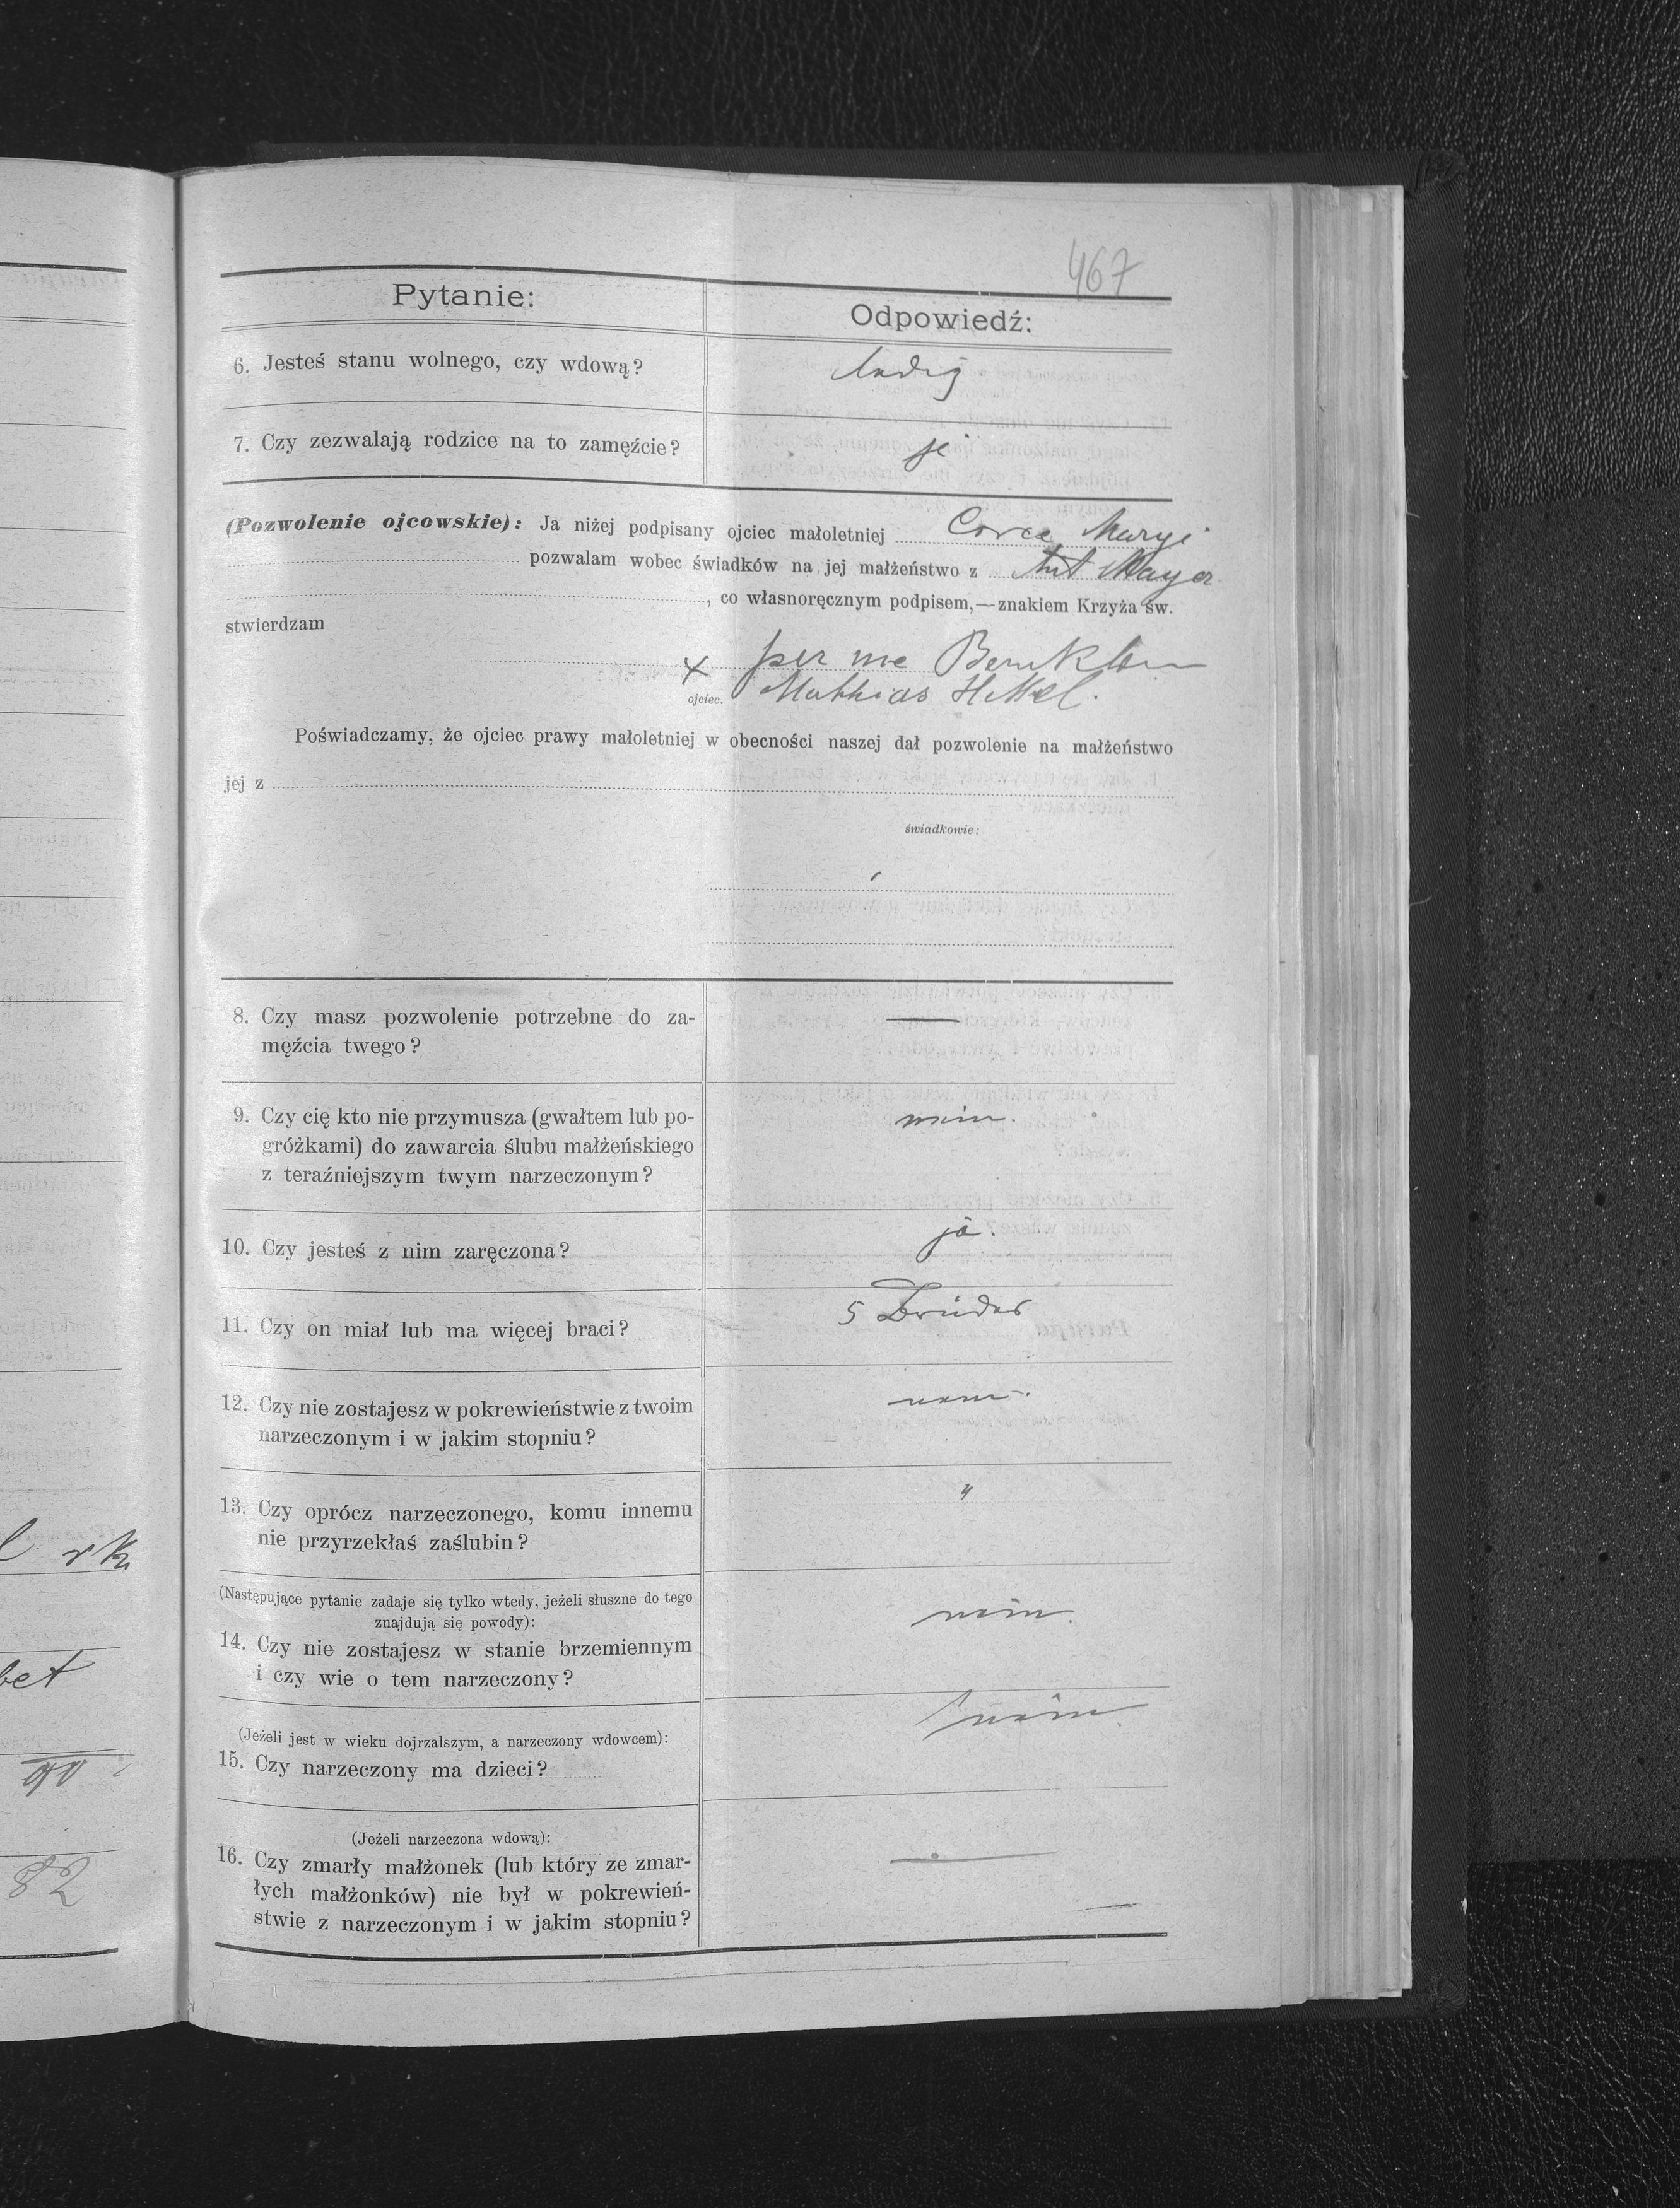 467
Pytanie:
Odpowiedź:
6. Jesteś stanu wolnego, czy wdową?
ledig
7. Czy zezwalają rodzice na to zamęźcie?
ja
(Pozwolenie ojcowskie): Ja niżej podpisany ojciec małoletniej Corce Maryi
pozwalam wobec świadków na jej małżeństwo z Ant Mayer
, co własnoręcznym podpisem,—znakiem Krzyża św.
stwierdzam
X per me
ojciec. Mathias
Poświadczamy, że ojciec prawy małoletniej w obecności naszej dał pozwolenie na małżeństwo
jej z
świadkowie:
8. Czy masz pozwolenie potrzebne do za-
męźcia twego?
—
9. Czy cię kto nie przymusza (gwałtem lub po-
gróżkami) do zawarcia ślubu małżeńskiego
z teraźniejszym twym narzeczonym?
nein.
10. Czy jesteś z nim zaręczona?
ja.
11. Czy on miał lub ma więcej braci?
5 Brüder
12. Czy nie zostajesz w pokrewieństwie z twoim
narzeczonym i w jakim stopniu?
nein.
13. Czy oprócz narzeczonego, komu innemu
nie przyrzekłaś zaślubin?
"
(Następujące pytanie zadaje się tylko wtedy, jeżeli słuszne do tego
znajdują się powody):
14. Czy nie zostajesz w stanie brzemiennym
i czy wie o tem narzeczony?
nein.
(Jeżeli jest w wieku dojrzalszym, a narzeczony wdowcem):
15. Czy narzeczony ma dzieci?
nein
(Jeżeli narzeczona wdową):
16. Czy zmarły małżonek (lub który ze zmar-
łych małżonków) nie był w pokrewień-
stwie z narzeczonym i w jakim stopniu?
—
rk
bet
90
82